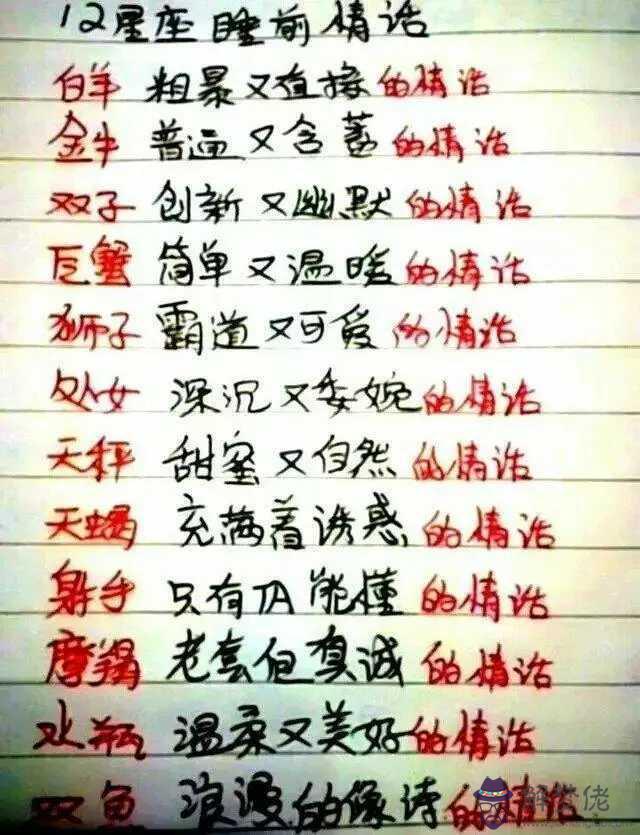 12星座睡前情话
白羊 粗暴又直接的情话
金牛 普通又含蓄的情话
双子 创新又幽默的情话
巨蟹 简单又温暖的情话
狮子 霸道又可爱的情话
处女 深沉又委婉的情话
天秤 甜蜜又自然的情话
天蝎 充满着诱惑的情话
射手 只有TA能懂的情话
摩羯 老套但真诚的情话
水瓶 温柔又美好的情话
双鱼 浪漫的像诗的情话
解梦佬